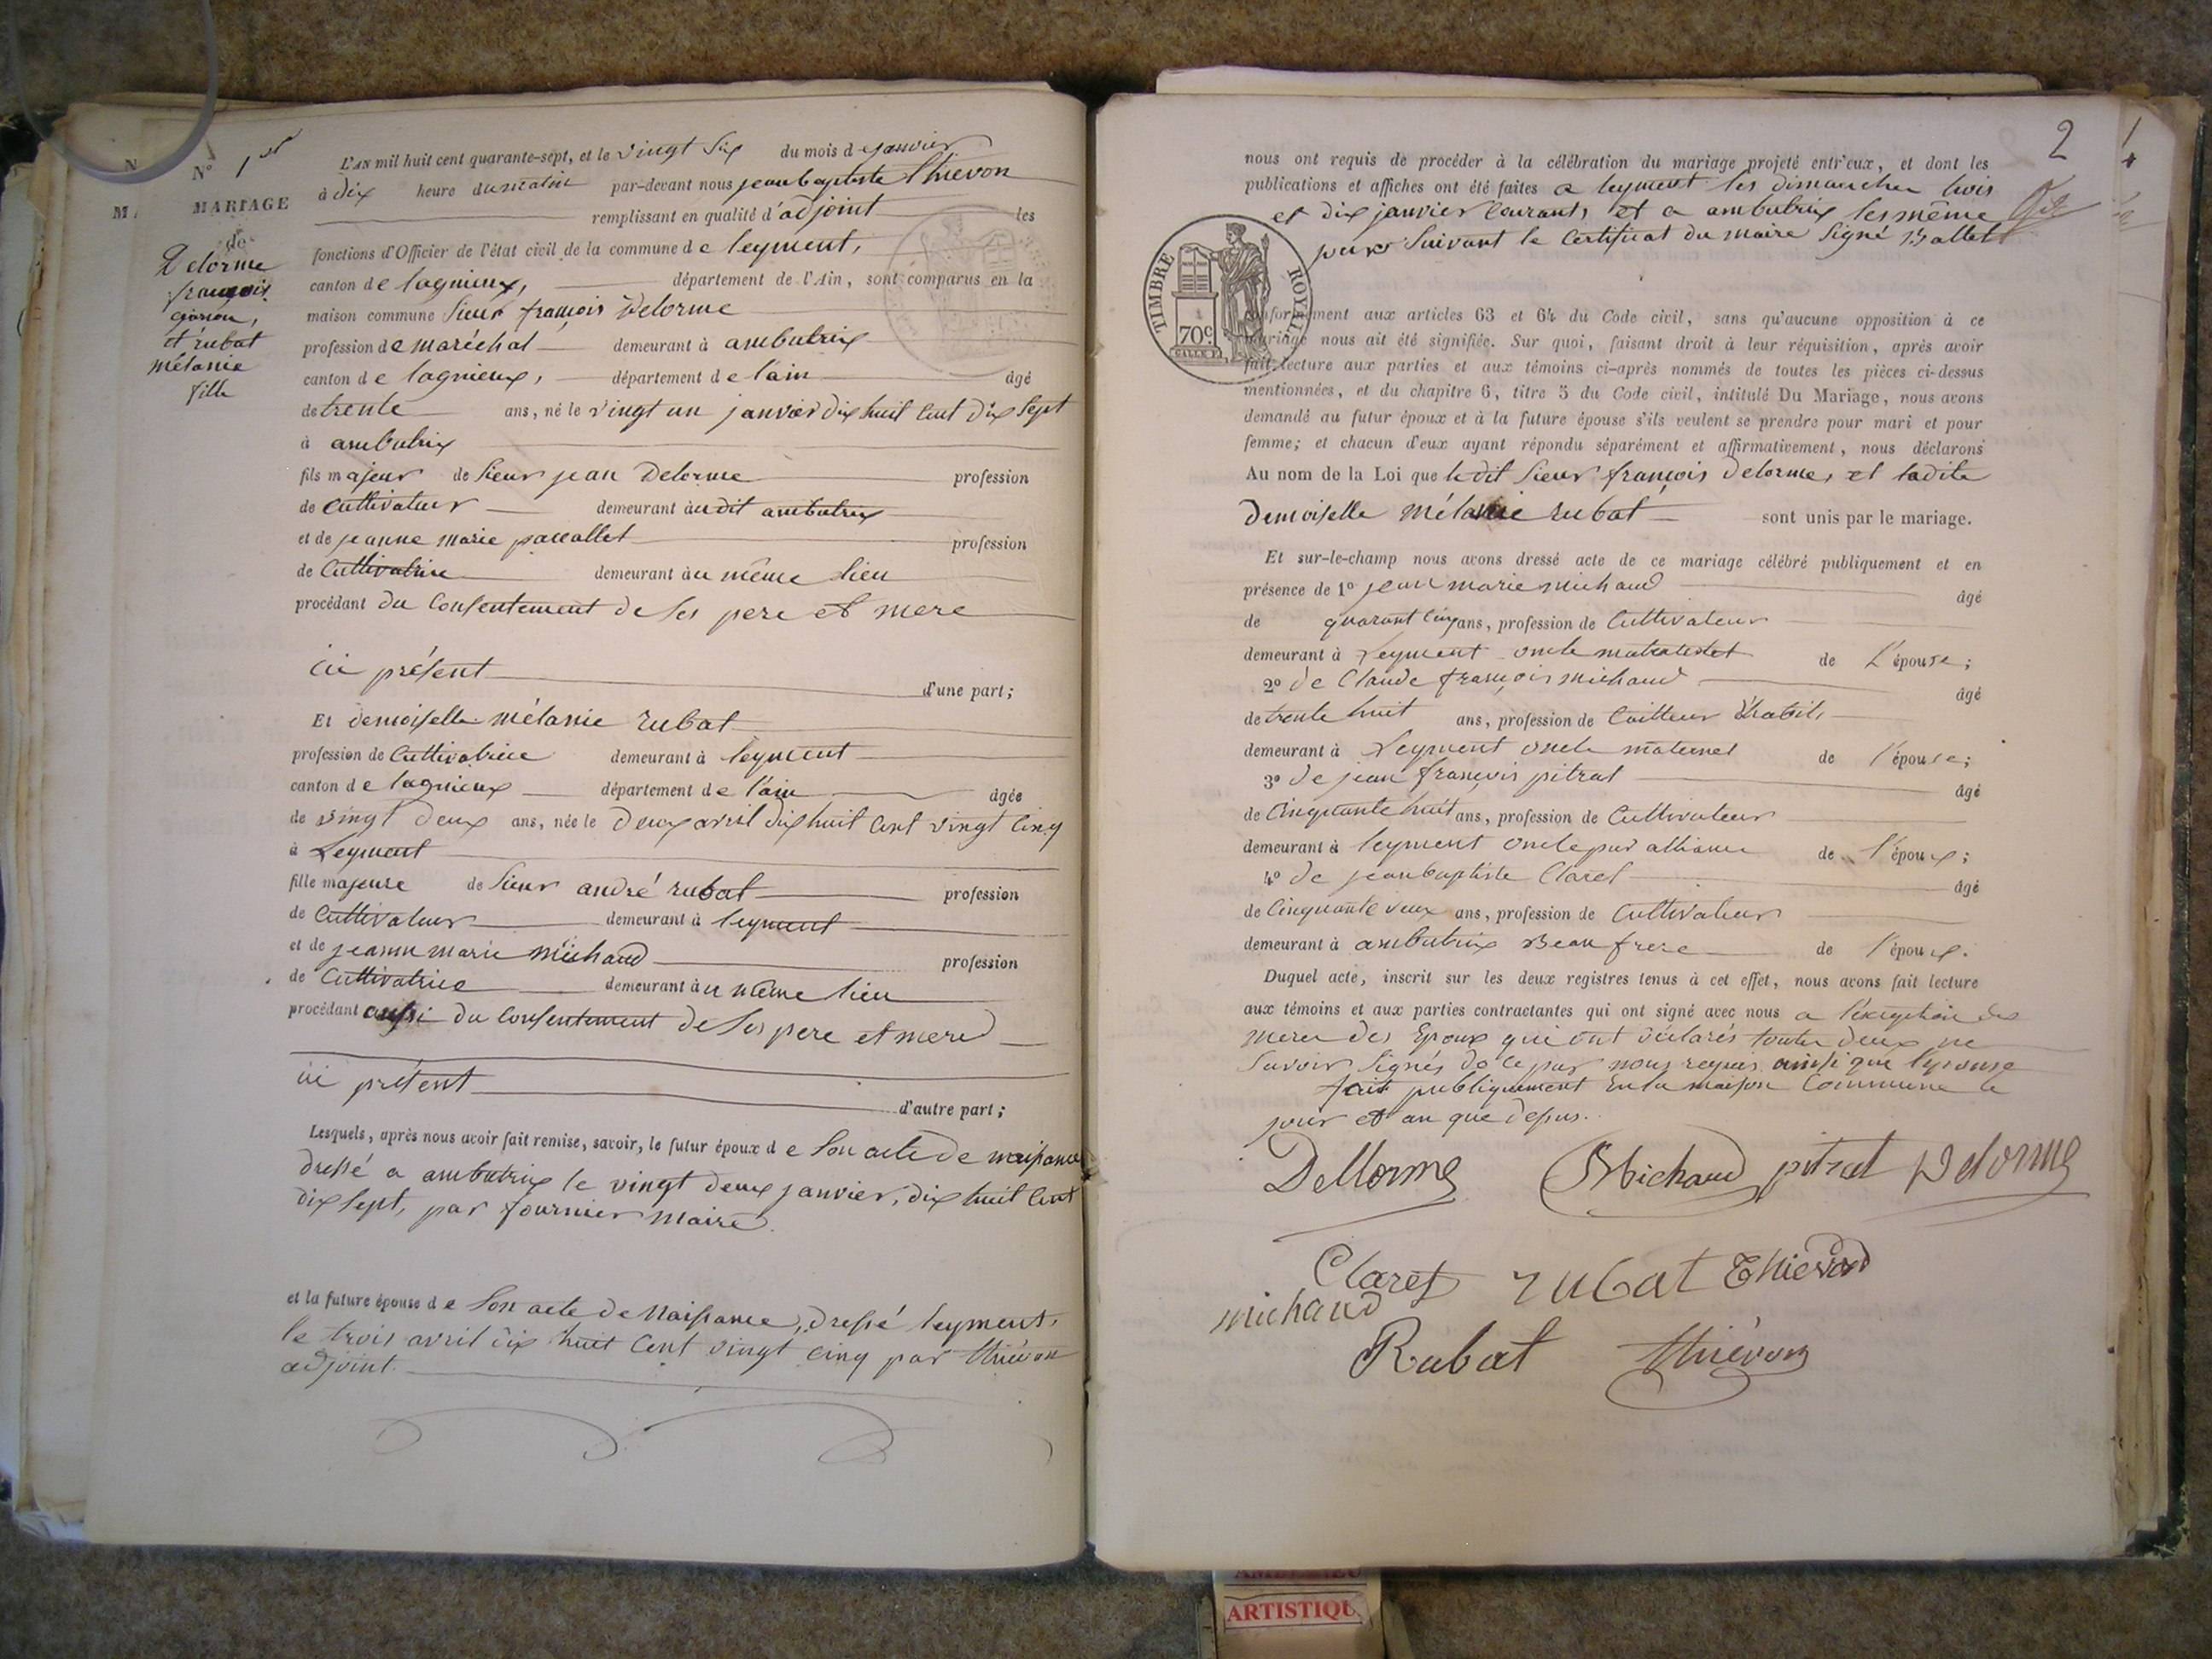 N° 1er
MARIAGE
de
Delorme
françois
garçon,
et rubat
mélanie
fille
L'AN mil huit cent quarante-sept, et le vingt six du mois de janvier
à dix heure du matin par-devant nous jean baptiste thievon
remplissant en qualité d'adjoint les
fonctions d'Officier de l'état civil de la commune de leyment,
canton de lagnieux, département de l'Ain, sont comparus en la
maison commune sieur françois Delorme
profession de maréchal demeurant à ambutrix
canton de lagnieux, département de l'ain âgé
de trente ans, né le vingt un janvier dix huit cent dix sept
à ambutrix
fils majeur de sieur jean Delorme profession
de cultivateur demeurant àu dit ambutrix
et de jeanne marie profession
de cultivatrice demeurant àu même lieu
procédant du consentement de ses pere et mere
ici présent d'une part;
Et demoiselle mélanie rubat
profession de cultivatrice demeurant à leyment
canton de lagnieux département de l'ain âgée
de vingt deux ans, née le deux avril dix huit cent vingt cinq
à Leyment
fille majeure de sieur andré rubat profession
de cultivateur demeurant à leyment
et de jeanne marie michaud profession
de cultivatrice demeurant àu même lieu
procédant aussi du consentement de ses pere et mere
ici présent d'autre part;
Lesquels, après nous avoir fait remise, savoir, le futur époux de son acte de naissance
dressé a ambutrix le vingt deux janvier, dix huit cent
dix sept, par fournier maire.
et la future épouse de son acte de naissance, dressé leyment,
le trois avril dix huit cent vingt cinq par thiévon
adjoint.
2
nous ont requis de procéder à la célébration du mariage projeté entr'eux, et dont les
publications et affiches ont été faites a leyment les dimanches trois
et dix janvier courant, et a ambutrix les même
jours suivant le certificat du maire signé Ballet
TIMBRE ROYAL
70c
conformément aux articles 63 et 64 du Code civil, sans qu'aucune opposition à ce
mariage nous ait été signifiée. Sur quoi, faisant droit à leur réquisition, après avoir
fait lecture aux parties et aux témoins ci-après nommés de toutes les pièces ci-dessus
mentionnées, et du chapitre 6, titre 5 du Code civil, intitulé Du Mariage, nous avons
demandé au futur époux et à la future épouse s'ils veulent se prendre pour mari et pour
femme; et chacun d'eux ayant répondu séparément et affirmativement, nous déclarons
Au nom de la Loi que le dit sieur françois Delorme, et ladite
Demoiselle mélanie rubat sont unis par le mariage.
Et sur-le-champ nous avons dressé acte de ce mariage célébré publiquement et en
présence de 1° jean marie michaud âgé
de quarant cinq ans, profession de cultivateur
demeurant à Leyment oncle de L'épouse;
2° de Claude françois michaud âgé
de trente huit ans, profession de tailleur d'habit,
demeurant à Leyment oncle maternel de l'épouse;
3° de jean françois pitrat âgé
de cinquante huit ans, profession de cultivateur
demeurant à leyment oncle par alliance de l'époux;
4° de jean baptiste Claret âgé
de cinquante deux ans, profession de cultivateur
demeurant à ambutrix Beau frere de l'époux.
Duquel acte, inscrit sur les deux registres tenus à cet effet, nous avons fait lecture
aux témoins et aux parties contractantes qui ont signé avec nous a l'exception des
meres des Epoux qui ont déclarés toutes deux ne
savoir signés de ce par nous requis ainsi que l'epouse
fait publiquement en la maison commune le
jour et an que dessus.
Dellorme Michaud pitrat Delorme
Claret rubat Thievon
michaud
Rubat thiévon
ARTISTIQU